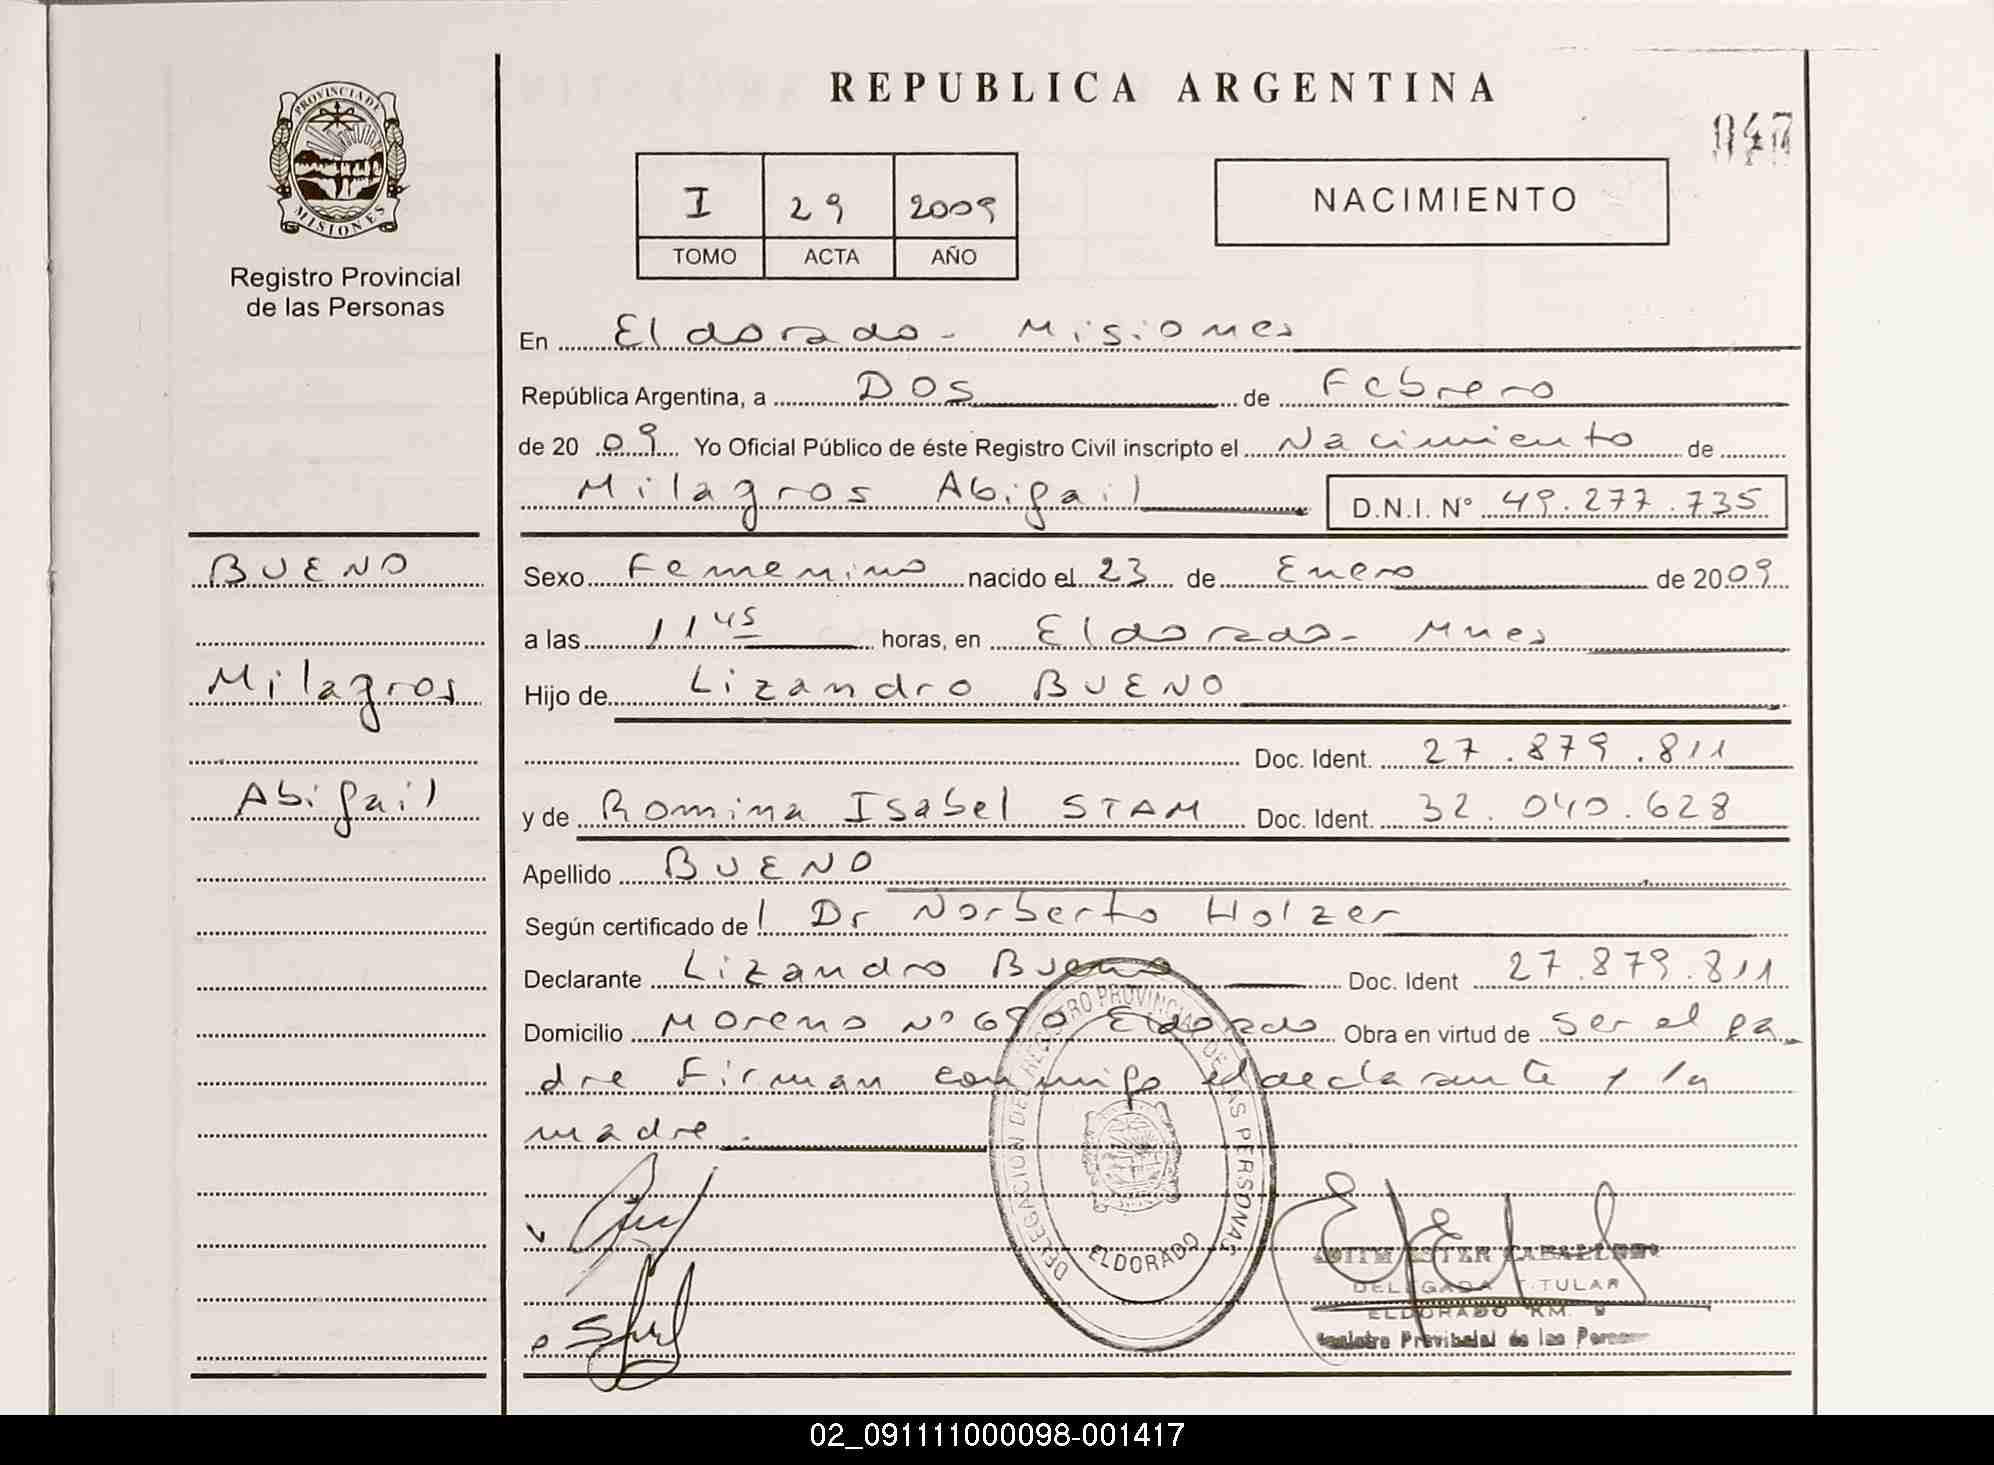 REPUBLICA ARGENTINA
047
PROVINCIA DE
MISIONES
Registro Provincial
de las Personas
I 29 2009
TOMO ACTA AÑO
NACIMIENTO
En Eldorado - Misiones
República Argentina, a DOS de Febrero
de 20 09 Yo Oficial Público de éste Registro Civil inscripto el Nacimiento de
Milagros Abigail D.N.I. N° 49.277.735
BUENO
Milagros
Abigail
Sexo Femenino nacido el 23 de Enero de 2009
a las 11 45 horas, en Eldorado - Mnes
Hijo de Lizandro BUENO
Doc. Ident. 27.879.811
y de Romina Isabel STAM Doc. Ident. 32.040.628
Apellido BUENO
Según certificado del Dr Norberto Holzer
Declarante Lizandro Bueno Doc. Ident 27.879.811
Domicilio Moreno N° 690 Eldorado Obra en virtud de ser el pa
dre Firman conmigo el declarante y la
madre.
DELEGACION DEL REGISTRO PROVINCIAL DE LAS PERSONAS
ELDORADO
DELEGADA TITULAR
ELDORADO KM. 9
Registro Provincial de las Personas
02_091111000098-001417